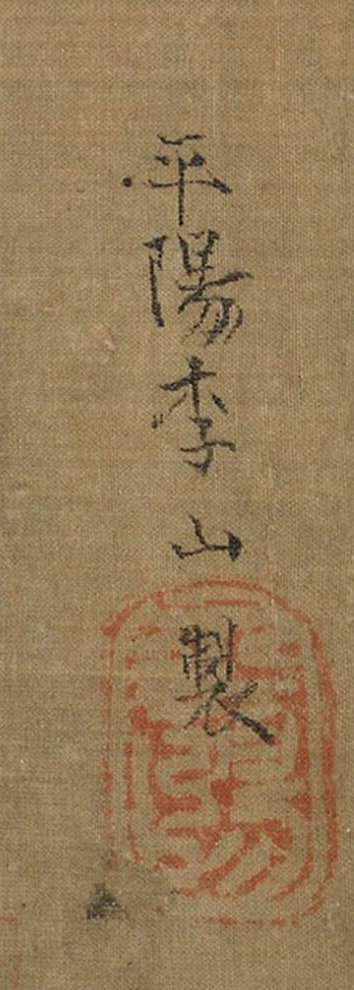 平陽李山製